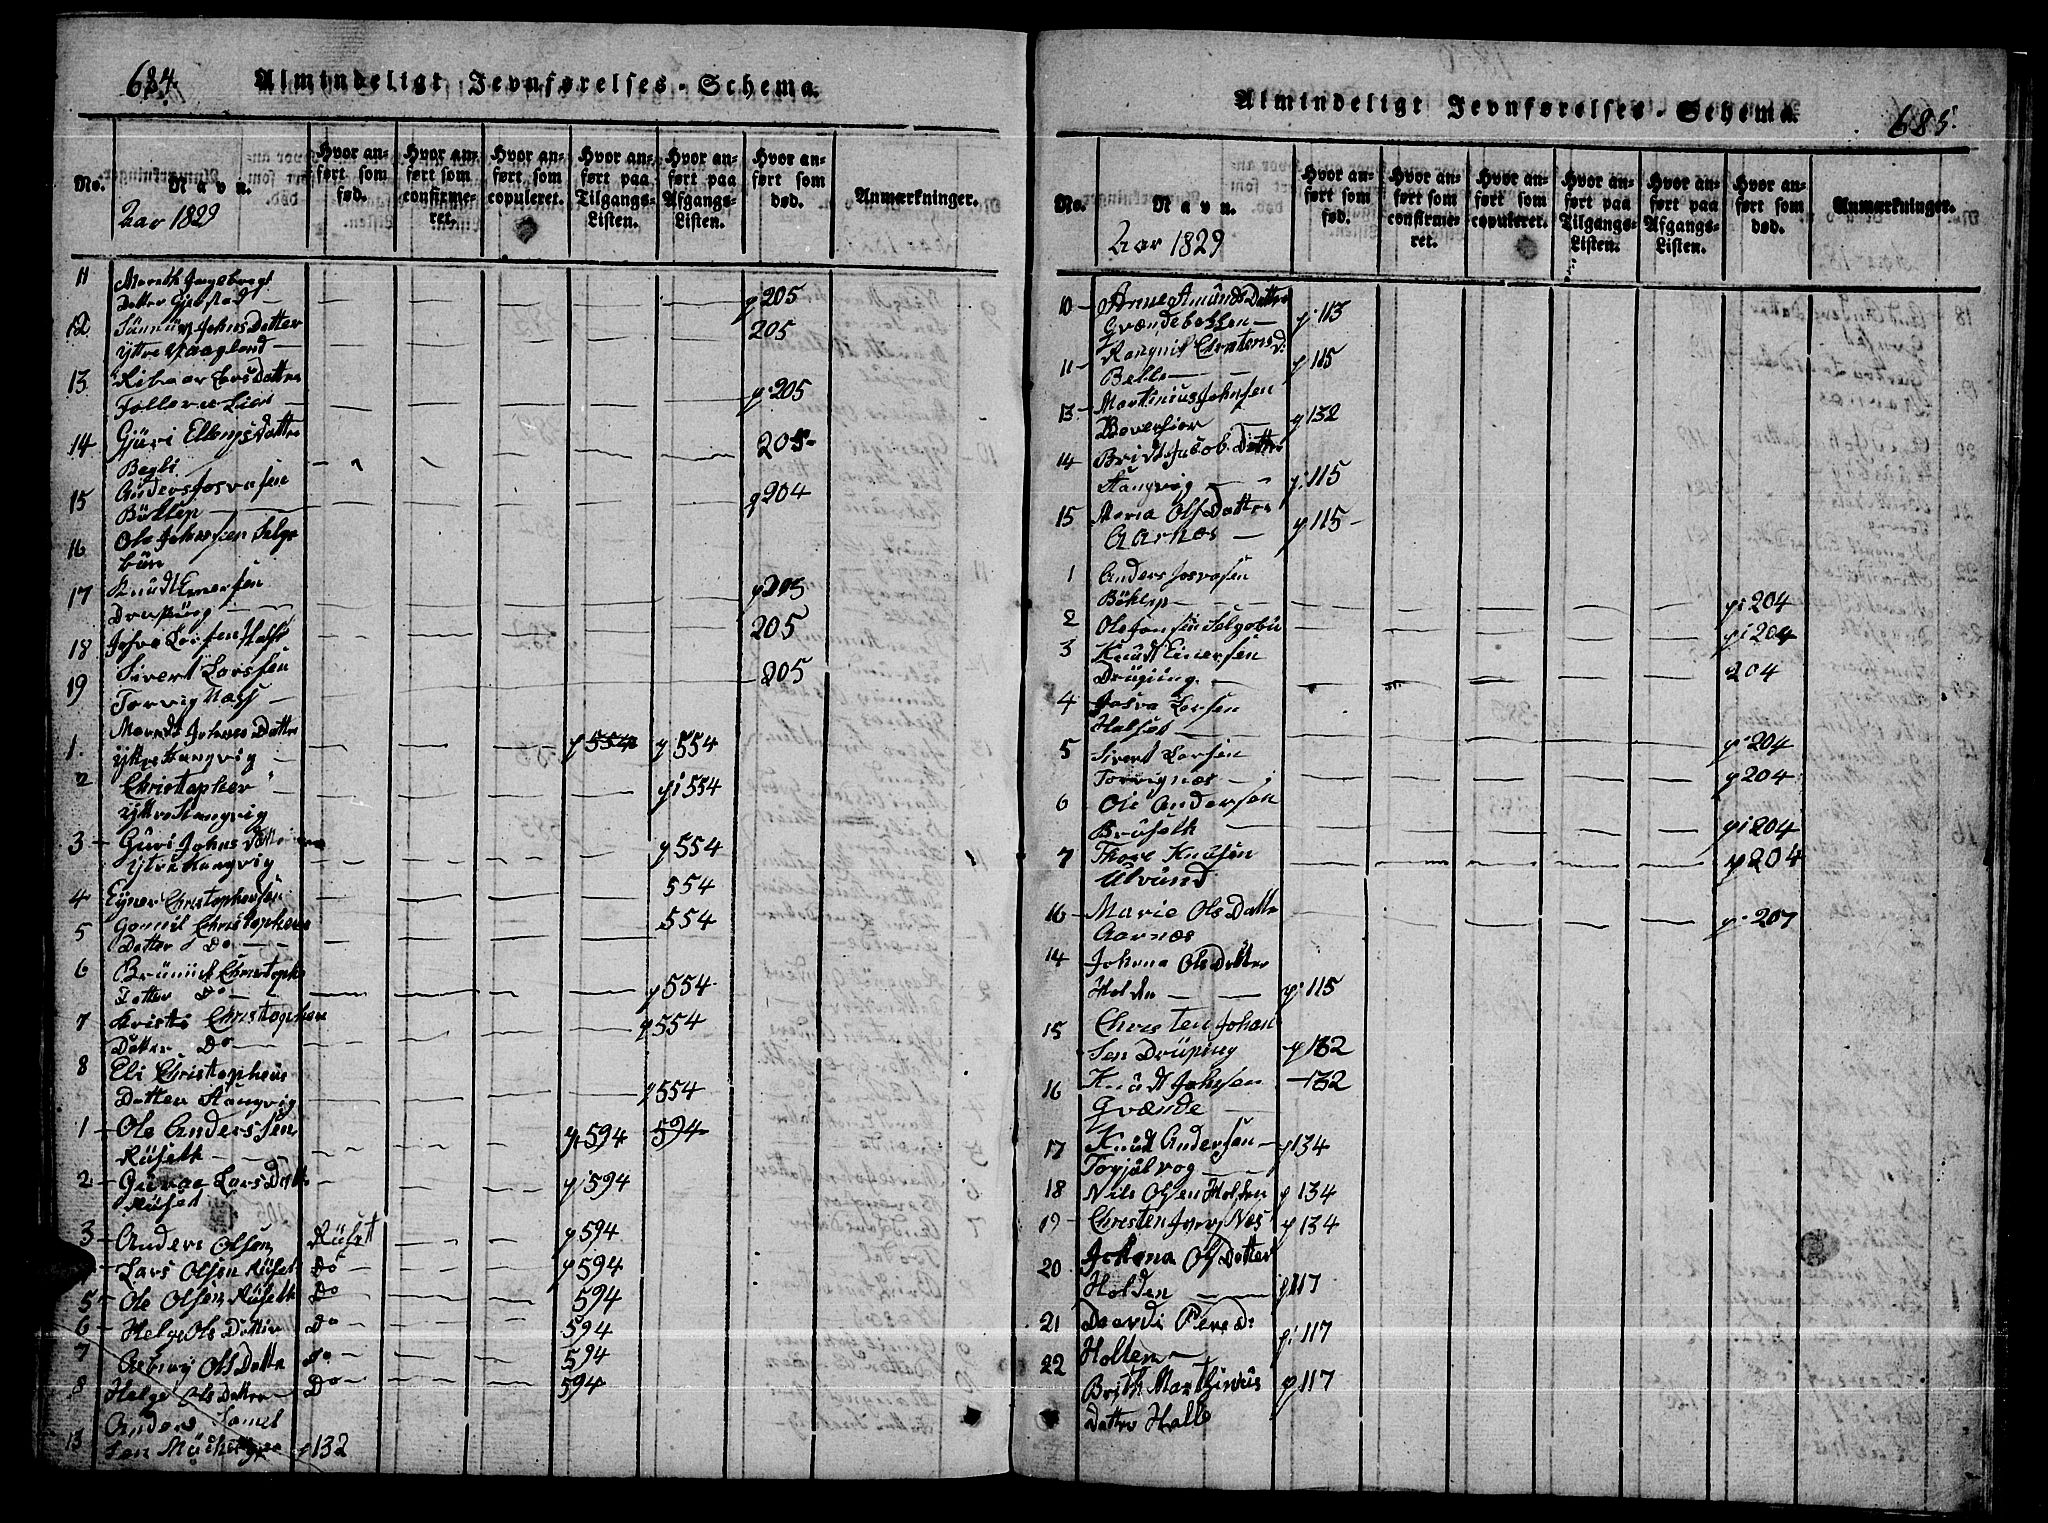 684.
Almindeligt Jevnførelses-Schema.
No.
Navn.
Hvor an-
ført som
fød.
Hvor an-
ført som
confirme-
ret.
Hvor an-
ført som
copuleret.
Hvor an-
ført paa
Tilgangs-
Listen.
Hvor an-
ført paa
Afgangs-
Listen.
Hvor an-
ført som
død.
Anmærkninger.
Aar 1829
11 Mareth Ingebregt
Datter Gjerstad p 205
12 Johns Datter
Yttre Vaagland 205
13 Lars Datter
Lien p. 205
14 Gjüri Ellengs Datter
Begli 205
15 Anders Josvasen
Böklep p 204
16 Ole Johnssen Selge
bün
17 Knüdt Einersen
p 205
18 Josva Larsen Halse 205
19 Sivert Larssen
Torvig Næss 205
1. Johnes Datter
Yttre Stangvig p 554 p 554
2 Christopher
Yttre Stangvig p: 554
3 Guri Johns Datter
Ytre Stangvig p 554
4 Eyner Christophersen 554
5 Gonnil Christophers
Datter Do 554
6 Christophs
Datter Do p 554
7 Kristi Christopher
Datter Do p 554
8 Eli Christophers
Datter Stangvig p 554
1 Ole Anderssen
Rüseth p 594 594
2 Lars Datt
Rüset p 594
3 Anders Olsen Rüsett p 594
Lars Olsen Rüset Do p 594
5 Ole Olsen Rüseth Do 594
6 Helge Ols Datter Do 594
7 Ols Datte Do 594
8 Helge Ols Datter Do 594
13 Anders
sen p 132
685.
Almindeligt Jevnførelses-Schema.
No.
Navn.
Hvor an-
ført som
fød.
Hvor an-
ført som
confirme-
ret.
Hvor an-
ført som
copuleret.
Hvor an-
ført paa
Tilgangs-
Listen.
Hvor an-
ført paa
Afgangs-
Listen.
Hvor an-
ført som
død.
Anmærkninger.
Aar 1829
10 Anne Amünds Datter
Qvændebakken p: 113
11 Rangnil
Belle p 115
13 Martinius Johnsen
Bæverfior p 132
14 Brit Jacob Datter
Stangvig p. 115
15 Maria Ols Datter
Aarnæs p 115
1 Anders Josvasen
Böklep p: 204
2 Ole Jonsen Selgebü p: 204
3 Knüdt Einersen
204
4 Josva Larsen
Halset p. 204
5 Sivert Larsen
Torvignæs p 204
6 Ole Andersen
Brüseth p: 204
7 Thore Knudsen
Ulvünd p 204
16 Marie Ols Datter
Aarnæs p. 207
14 Johana Ols Datter
Holden p: 115
15 Christen Johan
sen Drüping p 132
16 Knüdt Johnsen 132
Qvænde
17 Knüd Andersen p 134
18 Nils Olsen Holden p 134
19 Christen Ivers Næs p 134
20 Johana Ols Datter
Holden p 117
21 D:
Holten p: 117
22
Brith Marthinus p 117
Datter Halle